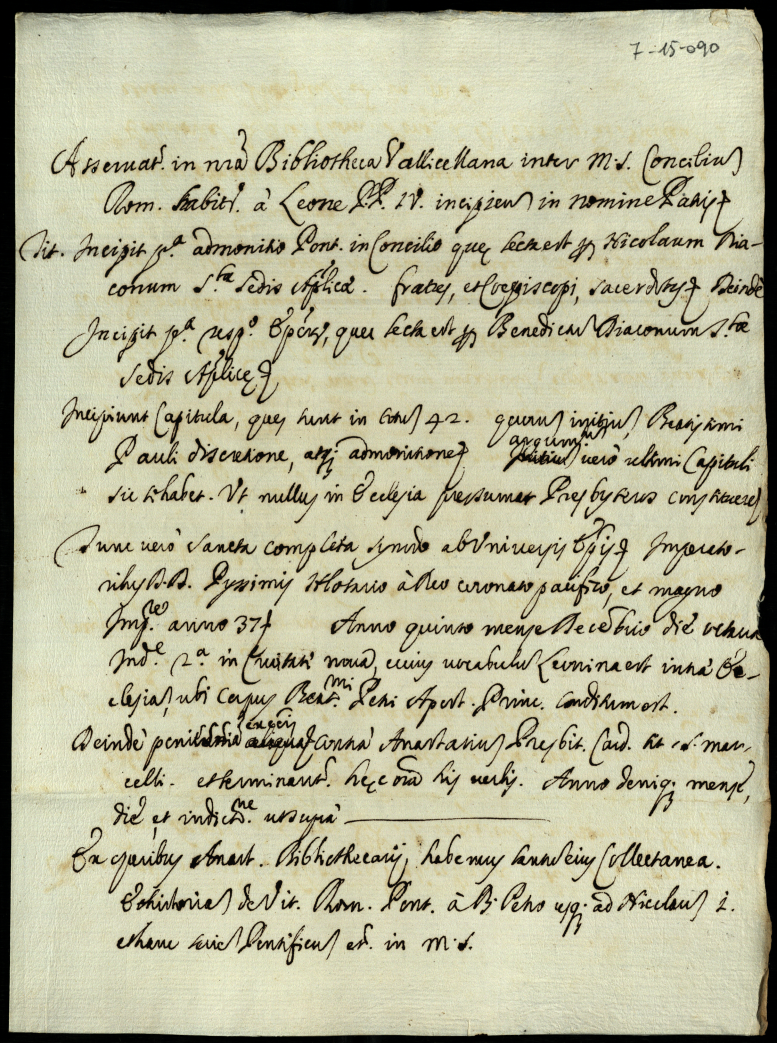 7-15-090
Asseruat. in nrã Bibliotheca Vallicellana inter M.S. Concilius
Rom. habit. à Leone P.P. IV. incipiens in nomine Patris
Tit. Incipit p.ª admonitio Pont. in Concilio quę lecta est p Nicolaum Dia-
conum S.tæ Sedis Aplicæ. fratres, et Coepiscopi, sacerdotes Deindè
Incipit p.ª resp.º Epõrũ, quæ lecta est p Benedictus Diaconum S.tæ
Sedis Aplicę
Incipiunt Capitula, quę sunt in totus 42. quorus initius, Beatissimi
Pauli discretione, atq; admonitione argumm uerò ultimi Capituli
sic habet. Ut nullus in Ecclesia presumat Presbyterus constituere
Tunc uerò sancta completa synodo ab Uniuersis Epis Imperato-
ribus D.D. Pyssimis Hlotario à Deo coronato pacifico, et magno
Imp.re anno 37 Anno quinto mense Decẽbrio diẽ octaua
Ind.e 2.ª in Ciuitatẽ nouã, cuius uocabulus Leonina est intrà Ec-
clesias, ubi corpus Beat.mi Petri Apost. Princ. conditum est.
Deindè contrà Anastasius Presbit. Card. tit. S. Mar-
celli. et terminant. hęc oĩa his uerbis. Anno deniq; mense,
diẽ, et indictne. ut suprà
Ex operibus Anast. Bibliothecarij, habemus eius Collectanea.
Et historias de Vit. Rom. Pont. à B. Petro usq; ad Nicolaus 1.
Pontificus et. in M.S.